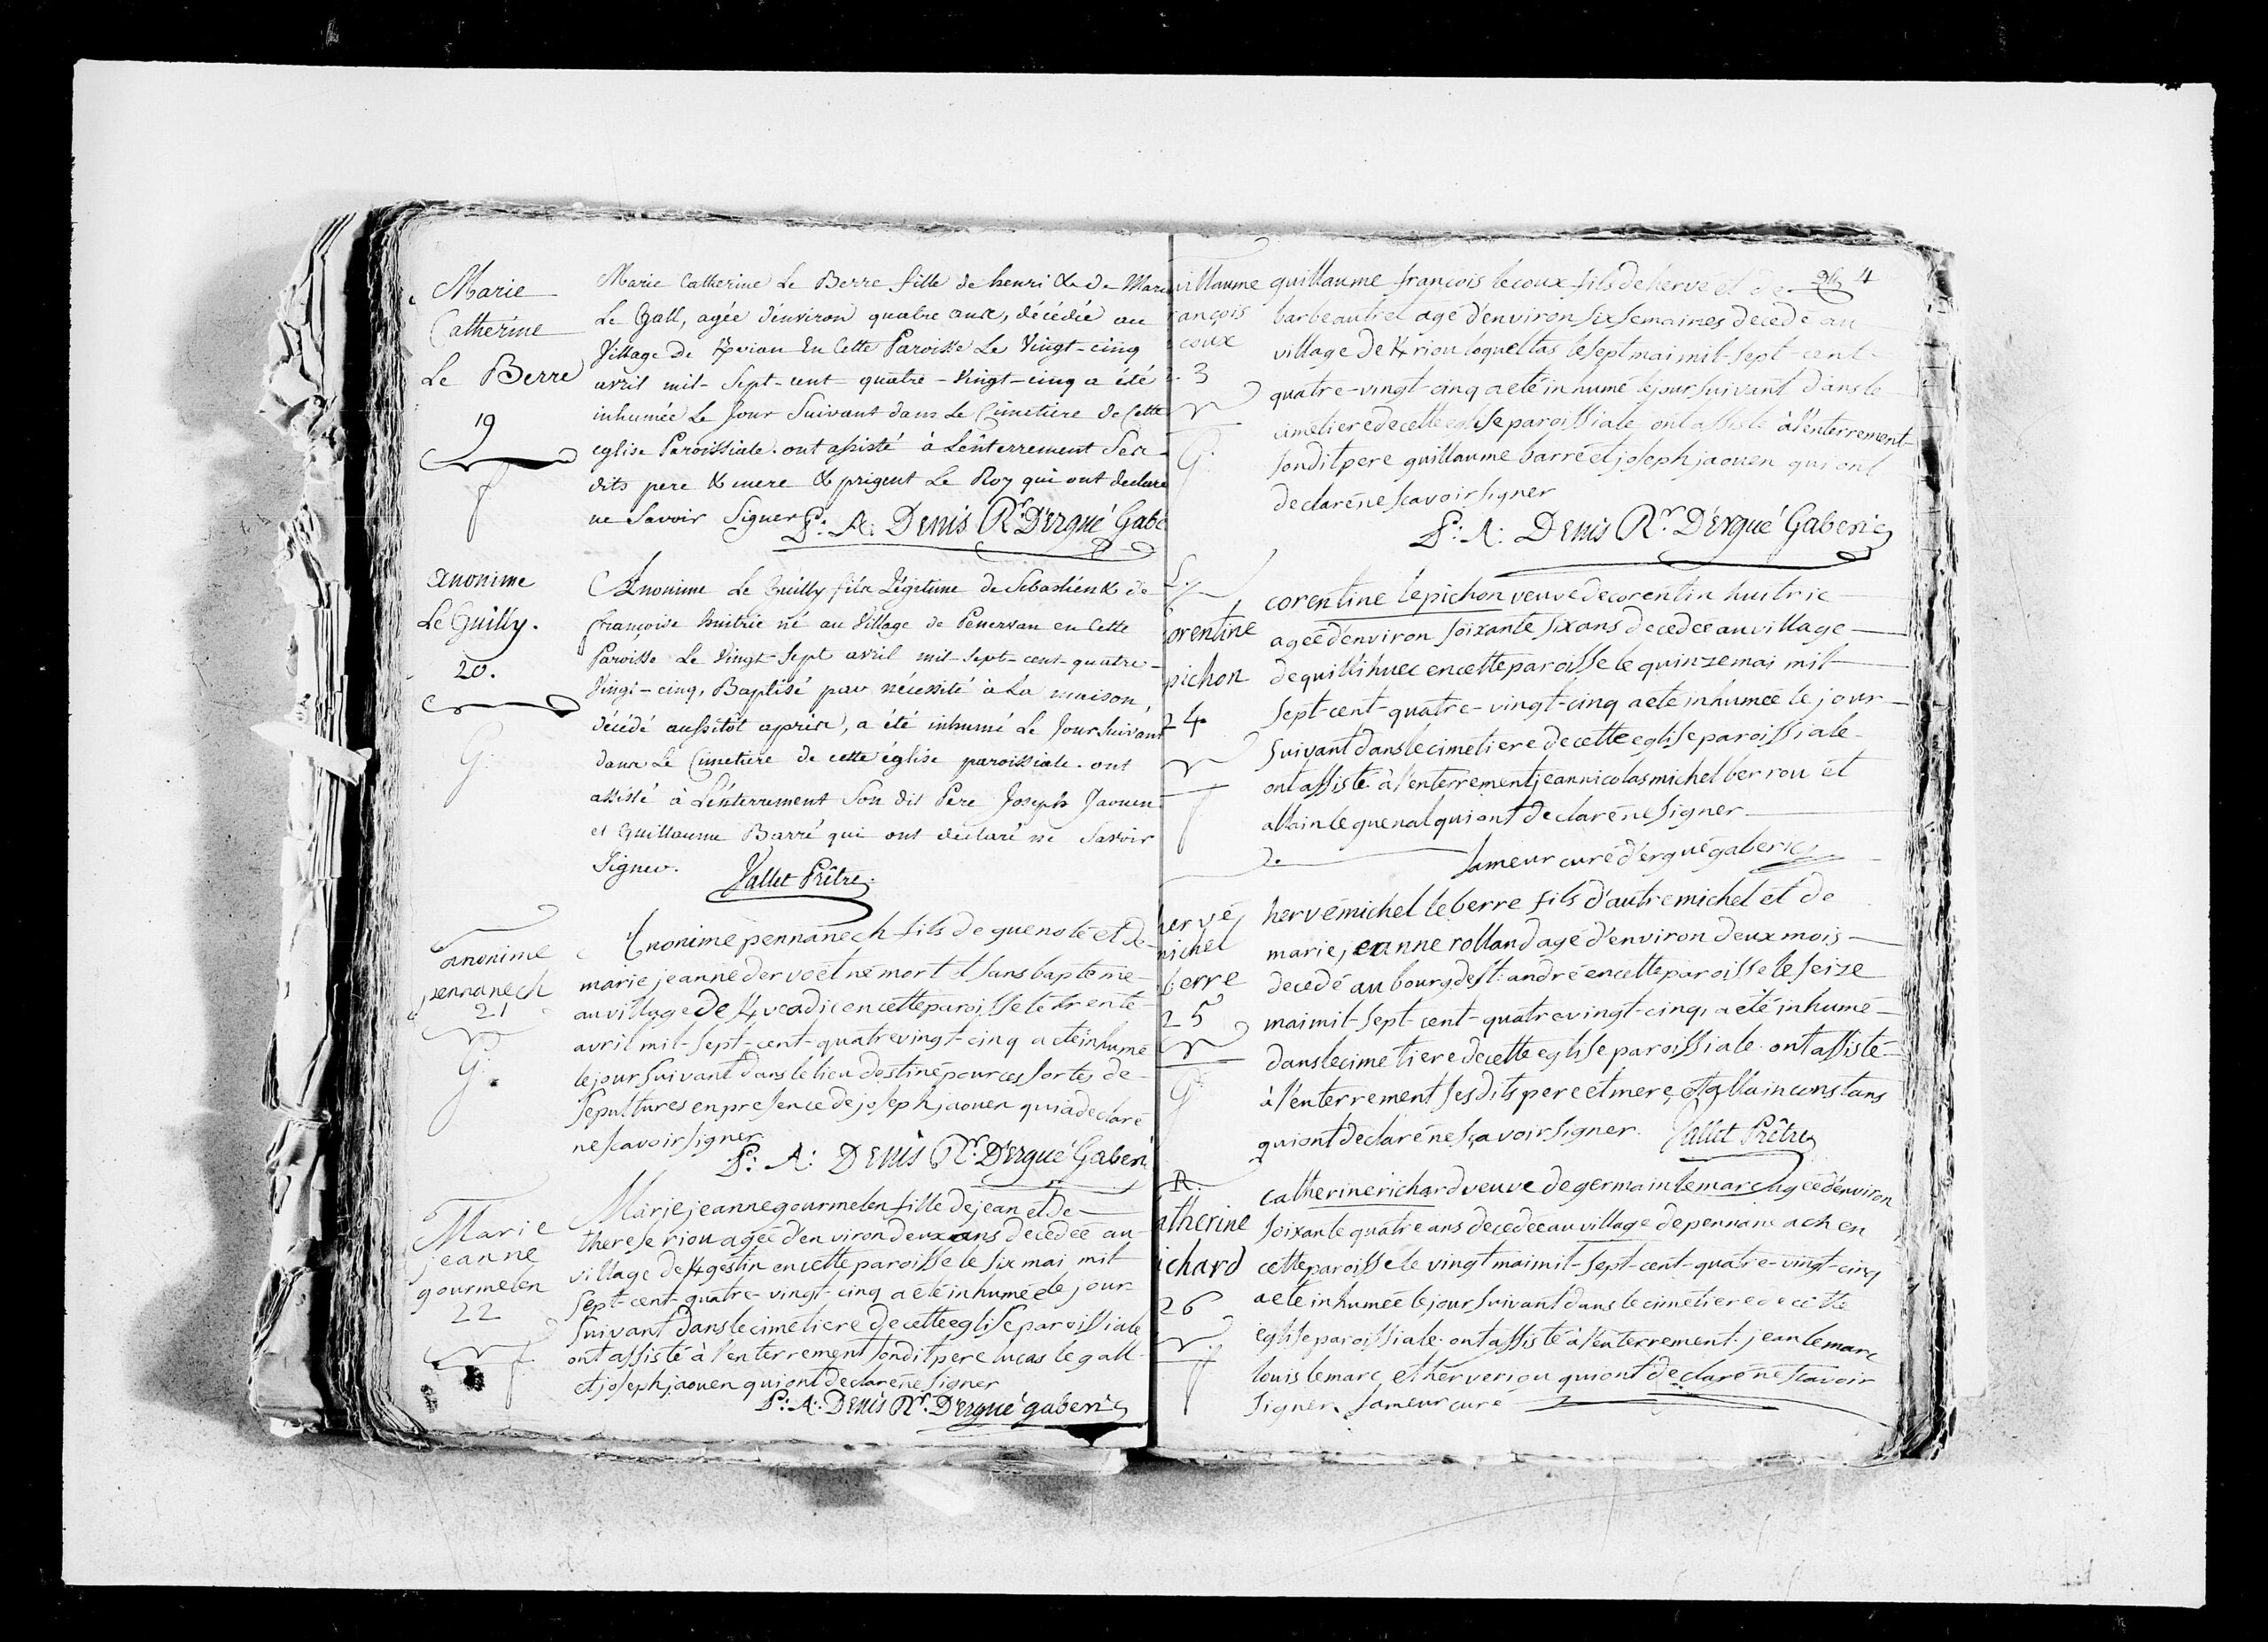 Marie
Catherine
Le Berre
19
Marie Catherine Le Berre fille de henri & de Marie
Le Gall, agée d'environ quatre ans, décédée au
Village de en Cette Paroisse Le Vingt-cinq
avril mil-Sept-cent-quatre-Vingt-cinq a été
inhumée Le Jour Suivant dans Le Cimetiere de Cette
eglise Paroissiale. ont assisté à L'enterrement Ses
dits pere & mere & prigent Le Roy qui ont declaré
ne Savoir Signer P: A: Denis Rr. D'Ergué Gabe
anonime
Le Guilly.
20.
G.
Anonime Le Guilly fils Légitime de Sebastien & de
françoise huitric né au Village de Penervan en Cette
Paroisse Le Vingt-Sept avril mil-Sept-cent-quatre-
Vingt-cinq, Baptisé par nécessité à La maison,
décédé aussitôt après, a été inhumé Le Jour Suivant
dans Le Cimetiere de cette église paroissiale. ont
assisté à L'enterrement Son dit Pere Joseph Jaouen
et Guillaume Barré qui ont déclaré ne Savoir
Signer. Vallet Prêtre.
anonime
pennanech
21
G.
Anonime pennanech fils de guenolé et de
marie jeanne dervoët né mort et sans baptême
au village de en cette paroisse le trente
avril mil-sept-cent-quatrevingt-cinq a eté inhumé
le jour suivant dans le lieu destiné pour ces sortes de
sepultures en presence de joseph jaouen qui a declaré
ne scavoir signer
P: A: Denis Rr. D'Ergué Gaberi
Marie
jeanne
gourmelen
22
Marie jeanne gourmelen fille de jean et de
therese riou agée d'environ deux ans decedée au
village de K/gestin en cette paroisse le six mai mil
sept-cent-quatre-vingt-cinq a eté inhumée le jour
suivant dans le cimetiere de cette eglise paroissiale
ont assisté à l'enterrement son dit pere lucas le gall
et joseph jaouen qui ont declaré ne signer
P: A: Denis Rr. D'Ergué gaberic
4
uillaume
rançois
coux
3
G.
guillaume françois lecoux fils de hervé et de
barbe autret agé d'environ six semaines decedé au
village de K/riou loqueltas le sept mai mil-sept-cent-
quatre-vingt-cinq a eté inhumé le jour suivant dans le
cimetiere de cette eglise paroissiale ont assisté à l'enterrement
son dit pere guillaume barré et joseph jaouen qui ont
declaré ne scavoir signer
P: A: Denis Rr. D'Ergué Gaberic
orentine
pichon
24
corentine le pichon veuve de corentin huitric
agée d'environ soixante six ans decedée au village
de quillihuec en cette paroisse le quinze mai mil
sept-cent-quatre-vingt-cinq a eté inhumée le jour
suivant dans le cimetiere de cette eglise paroissiale
ont assisté à l'enterrement jean nicolas michel berrou et
allain le guenal qui ont declaré ne signer
Lameur curé d'ergué gaberic
hervé
michel
berre
25
G
hervé michel le berre fils d'autre michel et de
marie jeanne rolland agé d'environ deux mois
decedé au bourg de st: andré en cette paroisse le seize
mai mil-sept-cent-quatrevingt-cinq, a été inhumé
dans le cimetiere de cette eglise paroissiale. ont assisté
à l'enterrement ses dits pere et mere, et allain constans
qui ont declaré ne sçavoir signer. Vallet Prêtre
R.
atherine
ichard
26
catherine richard veuve de germain lemarc agée d'environ
soixante quatre ans decedée au village de pennanech en
cette paroisse le vingt mai mil-sept-cent-quatre-vingt-cinq
a eté inhumée le jour suivant dans le cimetiere de cette
eglise paroissiale. ont assisté à l'enterrement. jean lemarc
louis lemarc, et hervé riou qui ont declaré ne scavoir
signer Lameur curé